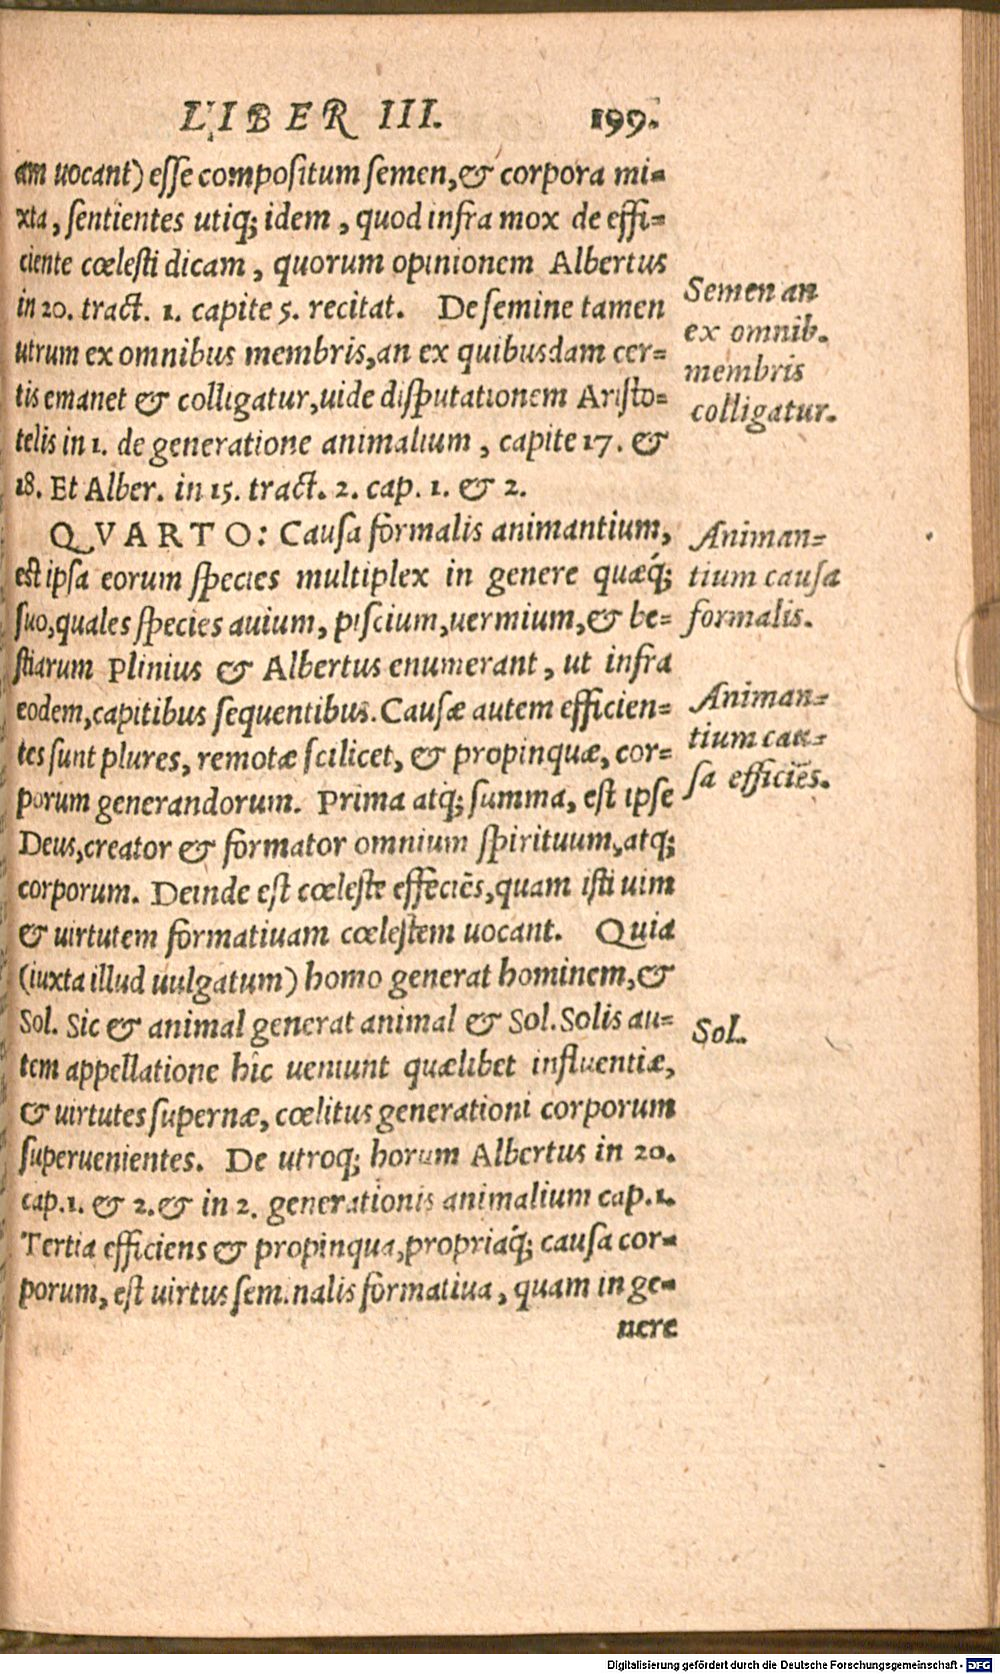 LIBER III. 199.
am uocant) esse compositum semen, & corpora mi=
xta, sentientes utiq; idem, quod infra mox de effi=
ciente cœlesti dicam, quorum opinionem Albertus
in 20. tract. 1. capite 5. recitat. De semine tamen
utrum ex omnibus membris, an ex quibusdam cer=
tis emanet & colligatur, uide disputationem Aristo=
telis in 1. de generatione animalium, capite 17. &
18. Et Alber. in 15. tract. 2. cap. 1. & 2.
Semen an
ex omnib.
membris
colligatur.
QVARTO: Causa formalis animantium,
est ipsa eorum species multiplex in genere quæq́;
suo, quales species auium, piscium, uermium, & be=
stiarum Plinius & Albertus enumerant, ut infra
eodem, capitibus sequentibus. Causæ autem efficien=
tes sunt plures, remotæ scilicet, & propinquæ, cor=
porum generandorum. Prima atq; summa, est ipse
Deus, creator & formator omnium spirituum, atq;
corporum. Deinde est cœleste efficiēs, quam isti uim
& uirtutem formatiuam cœlestem uocant. Quia
(iuxta illud uulgatum) homo generat hominem, &
Sol. Sic & animal generat animal & Sol. Solis au=
tem appellatione hic ueniunt quælibet influentiæ,
& uirtutes supernæ, cœlitus generationi corporum
superuenientes. De utroq; horum Albertus in 20.
cap. 1. & 2. & in 2. generationis animalium cap. 1.
Tertia efficiens & propinqua, propriaq́; causa cor=
porum, est uirtus seminalis formatiua, quam in ge=
nere
Animan=
tium causa
formalis.
Animan=
tium cau=
sa efficiēs.
Sol.
Digitalisierung gefördert durch die Deutsche Forschungsgemeinschaft - DFG